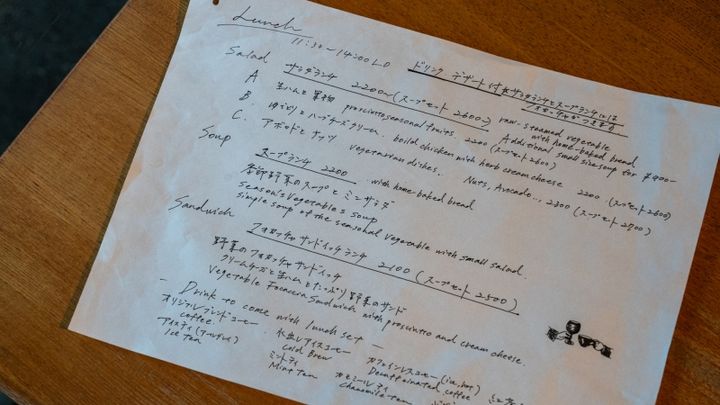 Lunch
11:30~14:00 L.O
ドリンク デザート付
サラダランチとスープランチには
フォカッチャがつきます
Salad サラダランチ 2200~(スープセット 2600)
raw-steamed vegetable
with home-baked bread
Additional small size soup for ¥400-
A 生ハムと果物 prosciutto seasonal fruits. 2200 (スープセット 2600)
B ゆでどりとハーブチーズクリーム. boild chicken with herb cream cheese 2200 (スープセット 2600)
C. アボカドとナッツ vegetarian dishes. Nuts, Avocado.., 2300 (スープセット 2700)
Soup スープランチ 2200 with home-baked bread
季節野菜のスープとミニサラダ
season's vegetable's soup
simple soup of the seasonal vegetable with small salad.
Sandwich フォカッチャサンドイッチランチ 2100 (スープセット 2500)
野菜のフォカッチャサンドイッチ
クリームチーズと生ハムとたっぷり野菜のサンド
Vegetable Focaccia Sandwich with prosciutto and cream cheese.
— Drink to come with lunch set —
オリジナルブレンドコーヒー
coffee.
水出しアイスコーヒー
Cold Brew
カフェインレスコーヒー (ice, hot)
Decaffeinated coffee
アイスティ(アールグレイ)
Ice tea
ミントティ
Mint tea
カモミールティ
Chamomile tea